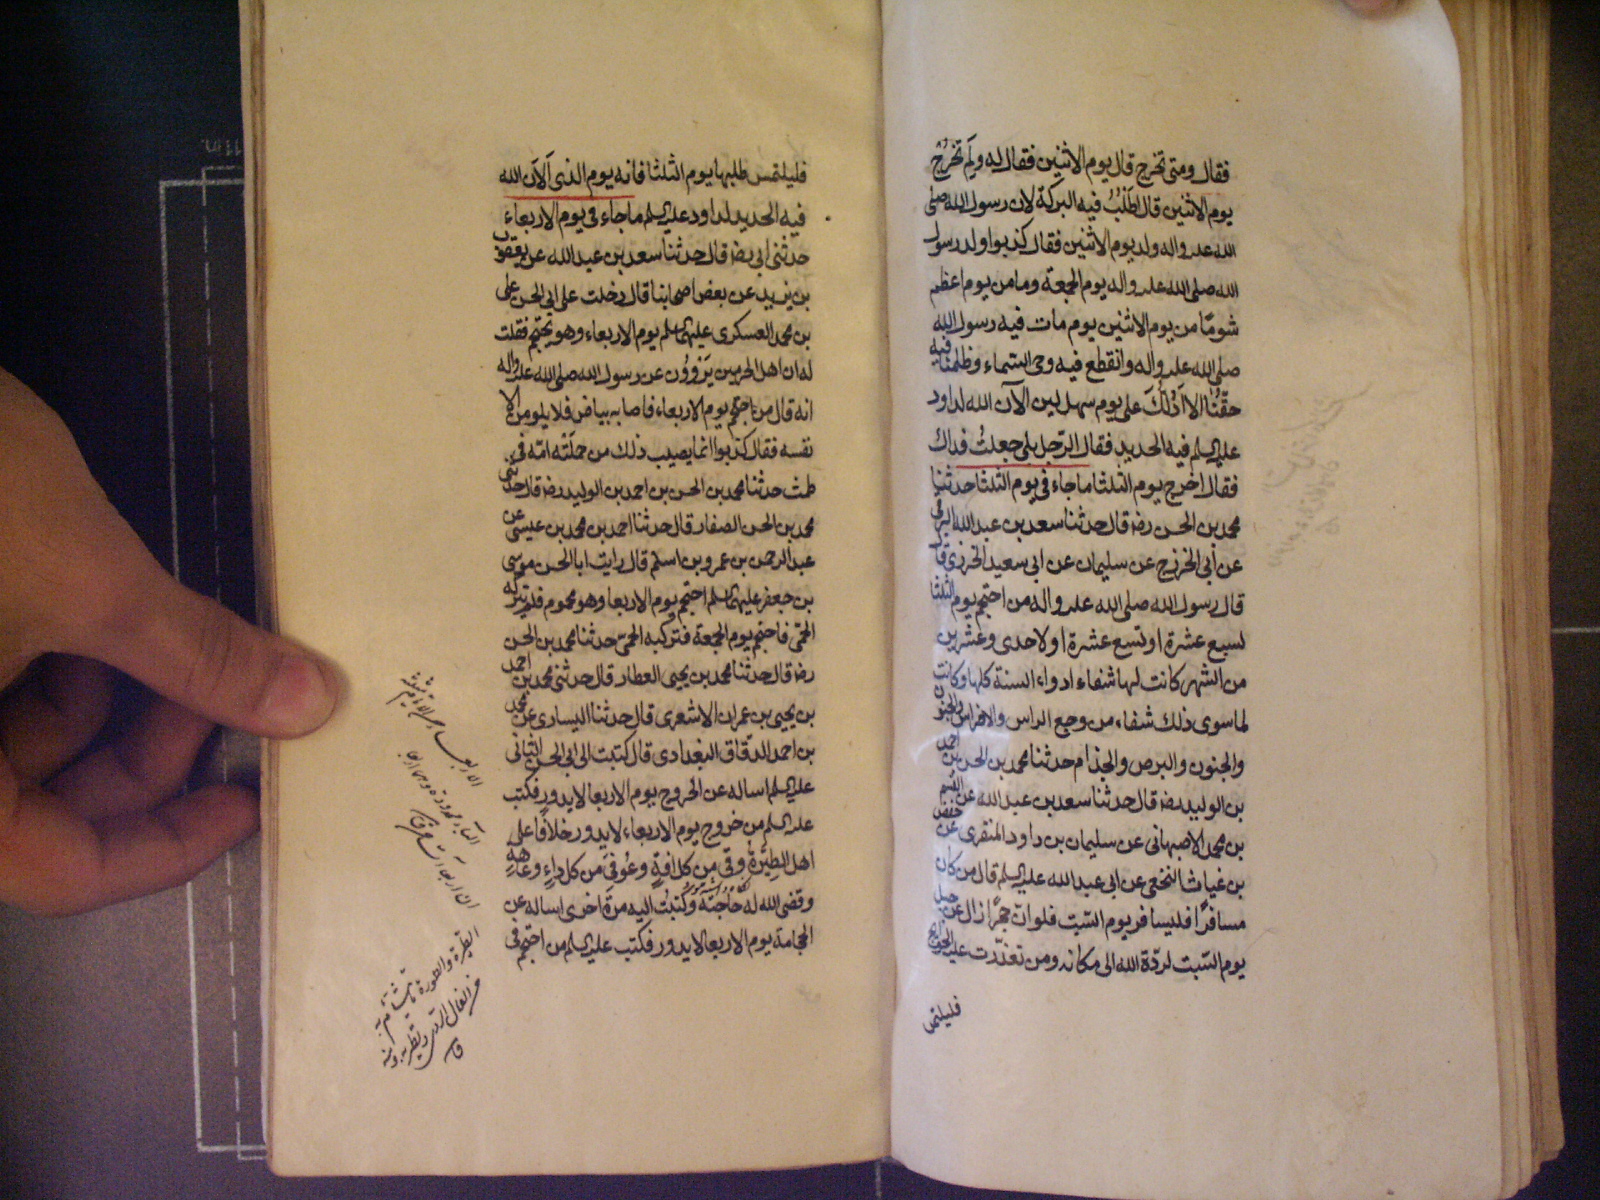 فقال ومتى تخرج قال يوم الاثنين فقال له ولم تخرج
يوم الاثنين قال اطلب فيه البركة لان رسول الله صلى
الله عليه واله ولد يوم الاثنين فقال كذبوا ولد رسول
الله صلى الله عليه واله يوم الجمعة وما من يوم اعظم
شومًا من يوم الاثنين يوم مات فيه رسول الله
صلى الله عليه واله وانقطع فيه وحى السماء وظلمنا فيه
حقّنا الا ادلّك على يوم سهل لين الآن الله لداود
عليه السلم فيه الحديد فقال الرّجل بلى جعلتُ فداك
فقال اخرج يوم الثلثا ما جاء فى يوم الثلثا حدثنا
محمد بن الحسن رضه قال حدثنا سعد بن عبد الله البرقى
عن أبى الخزرج عن سليمان عن ابى سعيد الخدرى قال
قال رسول الله صلى الله عليه واله من احتجم يوم الثلثا
لسبع عشرة او تسع عشرة او لاحدى وعشرين
من الشهر كانت لها شفاء ادواء السنة كلها وكانت
لما سوى ذلك شفاء من وجع الراس والاضراس والجنون
والجنون والبرص والجذام حدثنا محمد بن الحسن بن احمد
بن الوليد رضه قال حدثنا سعد بن عبد الله عن القسم
بن محمد الاصبهانى عن سليمان بن داود المنقرى عن حفص
بن غياث النخعى عن ابى عبد الله عليه السلم قال من كان
مسافرًا فليسافر يوم السّبت فلو ان حجرًا زال عن جبل
يوم السّبت لردّه الله الى مكانه ومن تعذّرت عليه الحوايج
فليلتمس
فليلتمس طلبها يوم الثلثا فانه يوم الذى آلآن الله
فيه الحديد لداود عليه السلم ما جاء فى يوم الاربعاء
حدثنى ابى رضه قال حدثنا سعد بن عبد الله عن يعقوب
بن يزيد عن بعض اصحابنا قال دخلت على ابى الحسن على
بن محمد العسكرى عليهما السلم يوم الاربعاء وهو يحتجم فقلت
له ان اهل الحرمين يَروُون عن رسول الله صلى الله عليه واله
انه قال من احتجم يوم الاربعاء فاصابه بياض فلا يلومن الا
نفسه فقال كذبوا انما يصيب ذلك من حملَتْه امّه فى
طمث حدثنا محمد بن الحسن بن احمد بن الوليد رضه قال حدثنى
محمد بن الحسن الصفار قال حدثنا احمد بن محمد بن عيسى عن
عبد الرحمن بن عمرو بن اسلم قال رايت ابا الحسن موسى
بن جعفر عليهما السلم احتجم يوم الاربعا وهو محموم فلم تتركه
الحمّى فاحتجم يوم الجمعة فتركته الحمّى حدثنا محمد بن الحسن
رضه قال حدثنا محمد بن يحيى العطار قال حدثنى محمد بن احمد
بن يحيى بن عمران الاشعرى قال حدثنا اليسارى عن محمد
بن احمد الدقاق البغدادى قال كتبت الى ابى الحسن الثانى
عليه السلم اساله عن الخروج يوم الاربعا لا يدور فكتب
عليه السلم من خروج يوم الاربعاء لا يدور خلافًا على
اهل الطِيَرَة وقى من كل افةٍ وعُوفى من كل داءٍ وعاهةٍ
وقضى الله له حاجته وكتبتُ اليه مرة اخرى اساله عن
الحجامة يوم الاربعا لا يدور فكتب عليه السلم من احتجم فى